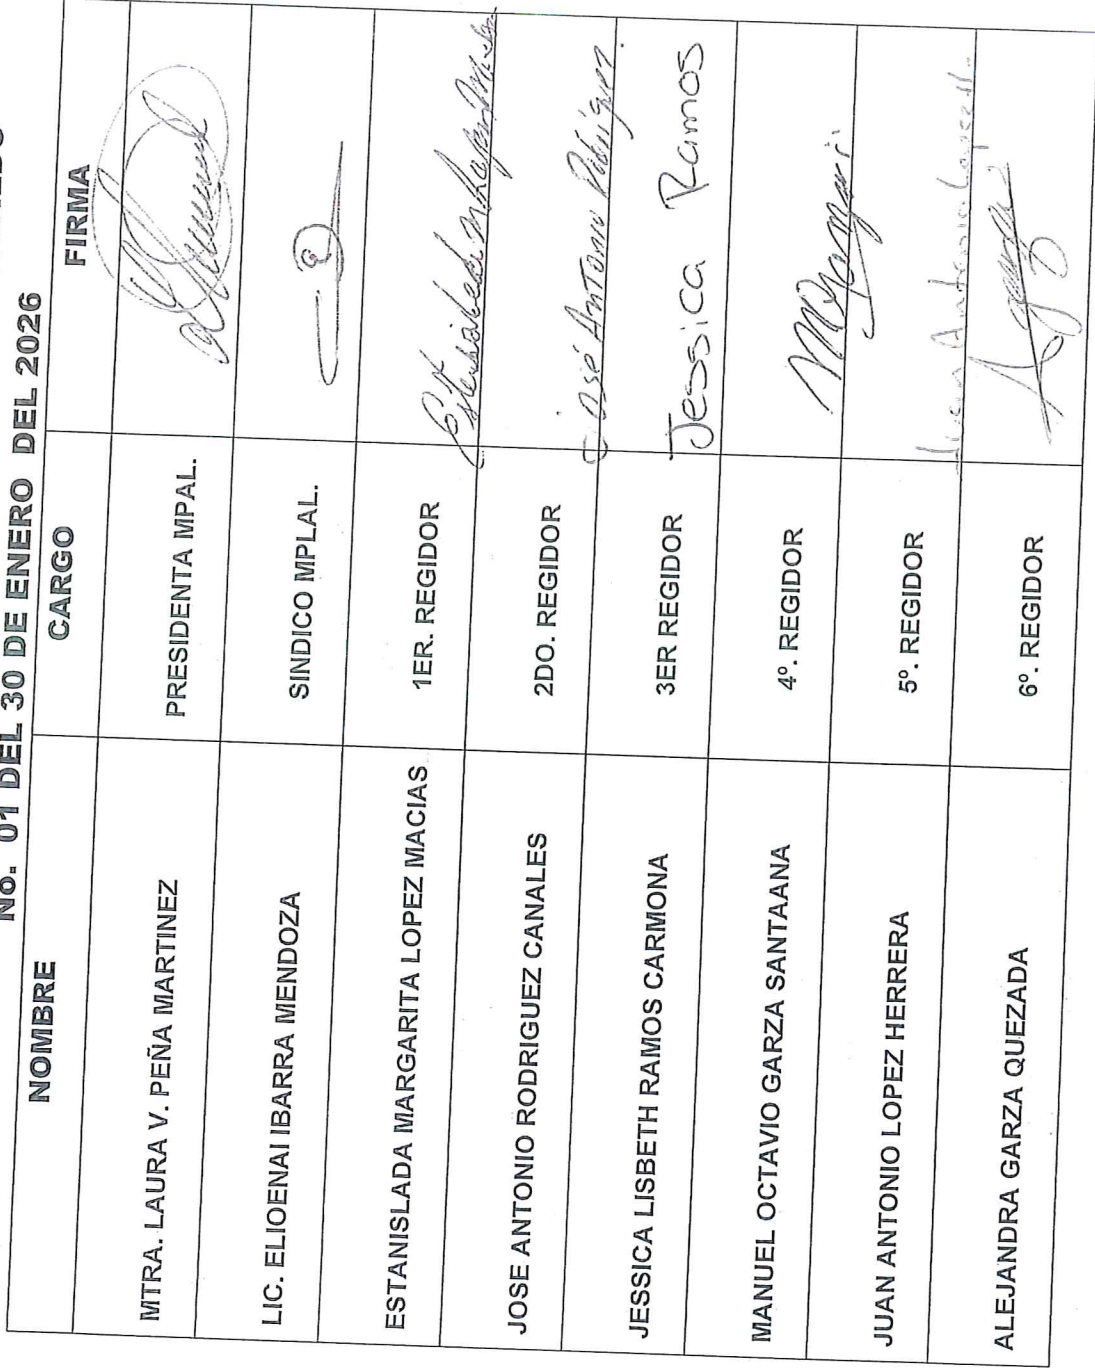 No. 01 DEL 30 DE ENERO DEL 2026
NOMBRE CARGO FIRMA
MTRA. LAURA V. PEÑA MARTINEZ PRESIDENTA MPAL.
LIC. ELIOENAI IBARRA MENDOZA SINDICO MPLAL.
ESTANISLADA MARGARITA LOPEZ MACIAS 1ER. REGIDOR
JOSE ANTONIO RODRIGUEZ CANALES 2DO. REGIDOR José Antonio Rodríguez
JESSICA LISBETH RAMOS CARMONA 3ER REGIDOR Jessica Ramos
MANUEL OCTAVIO GARZA SANTAANA 4º. REGIDOR
JUAN ANTONIO LOPEZ HERRERA 5º. REGIDOR Juan Antonio Lopez H.
ALEJANDRA GARZA QUEZADA 6º. REGIDOR